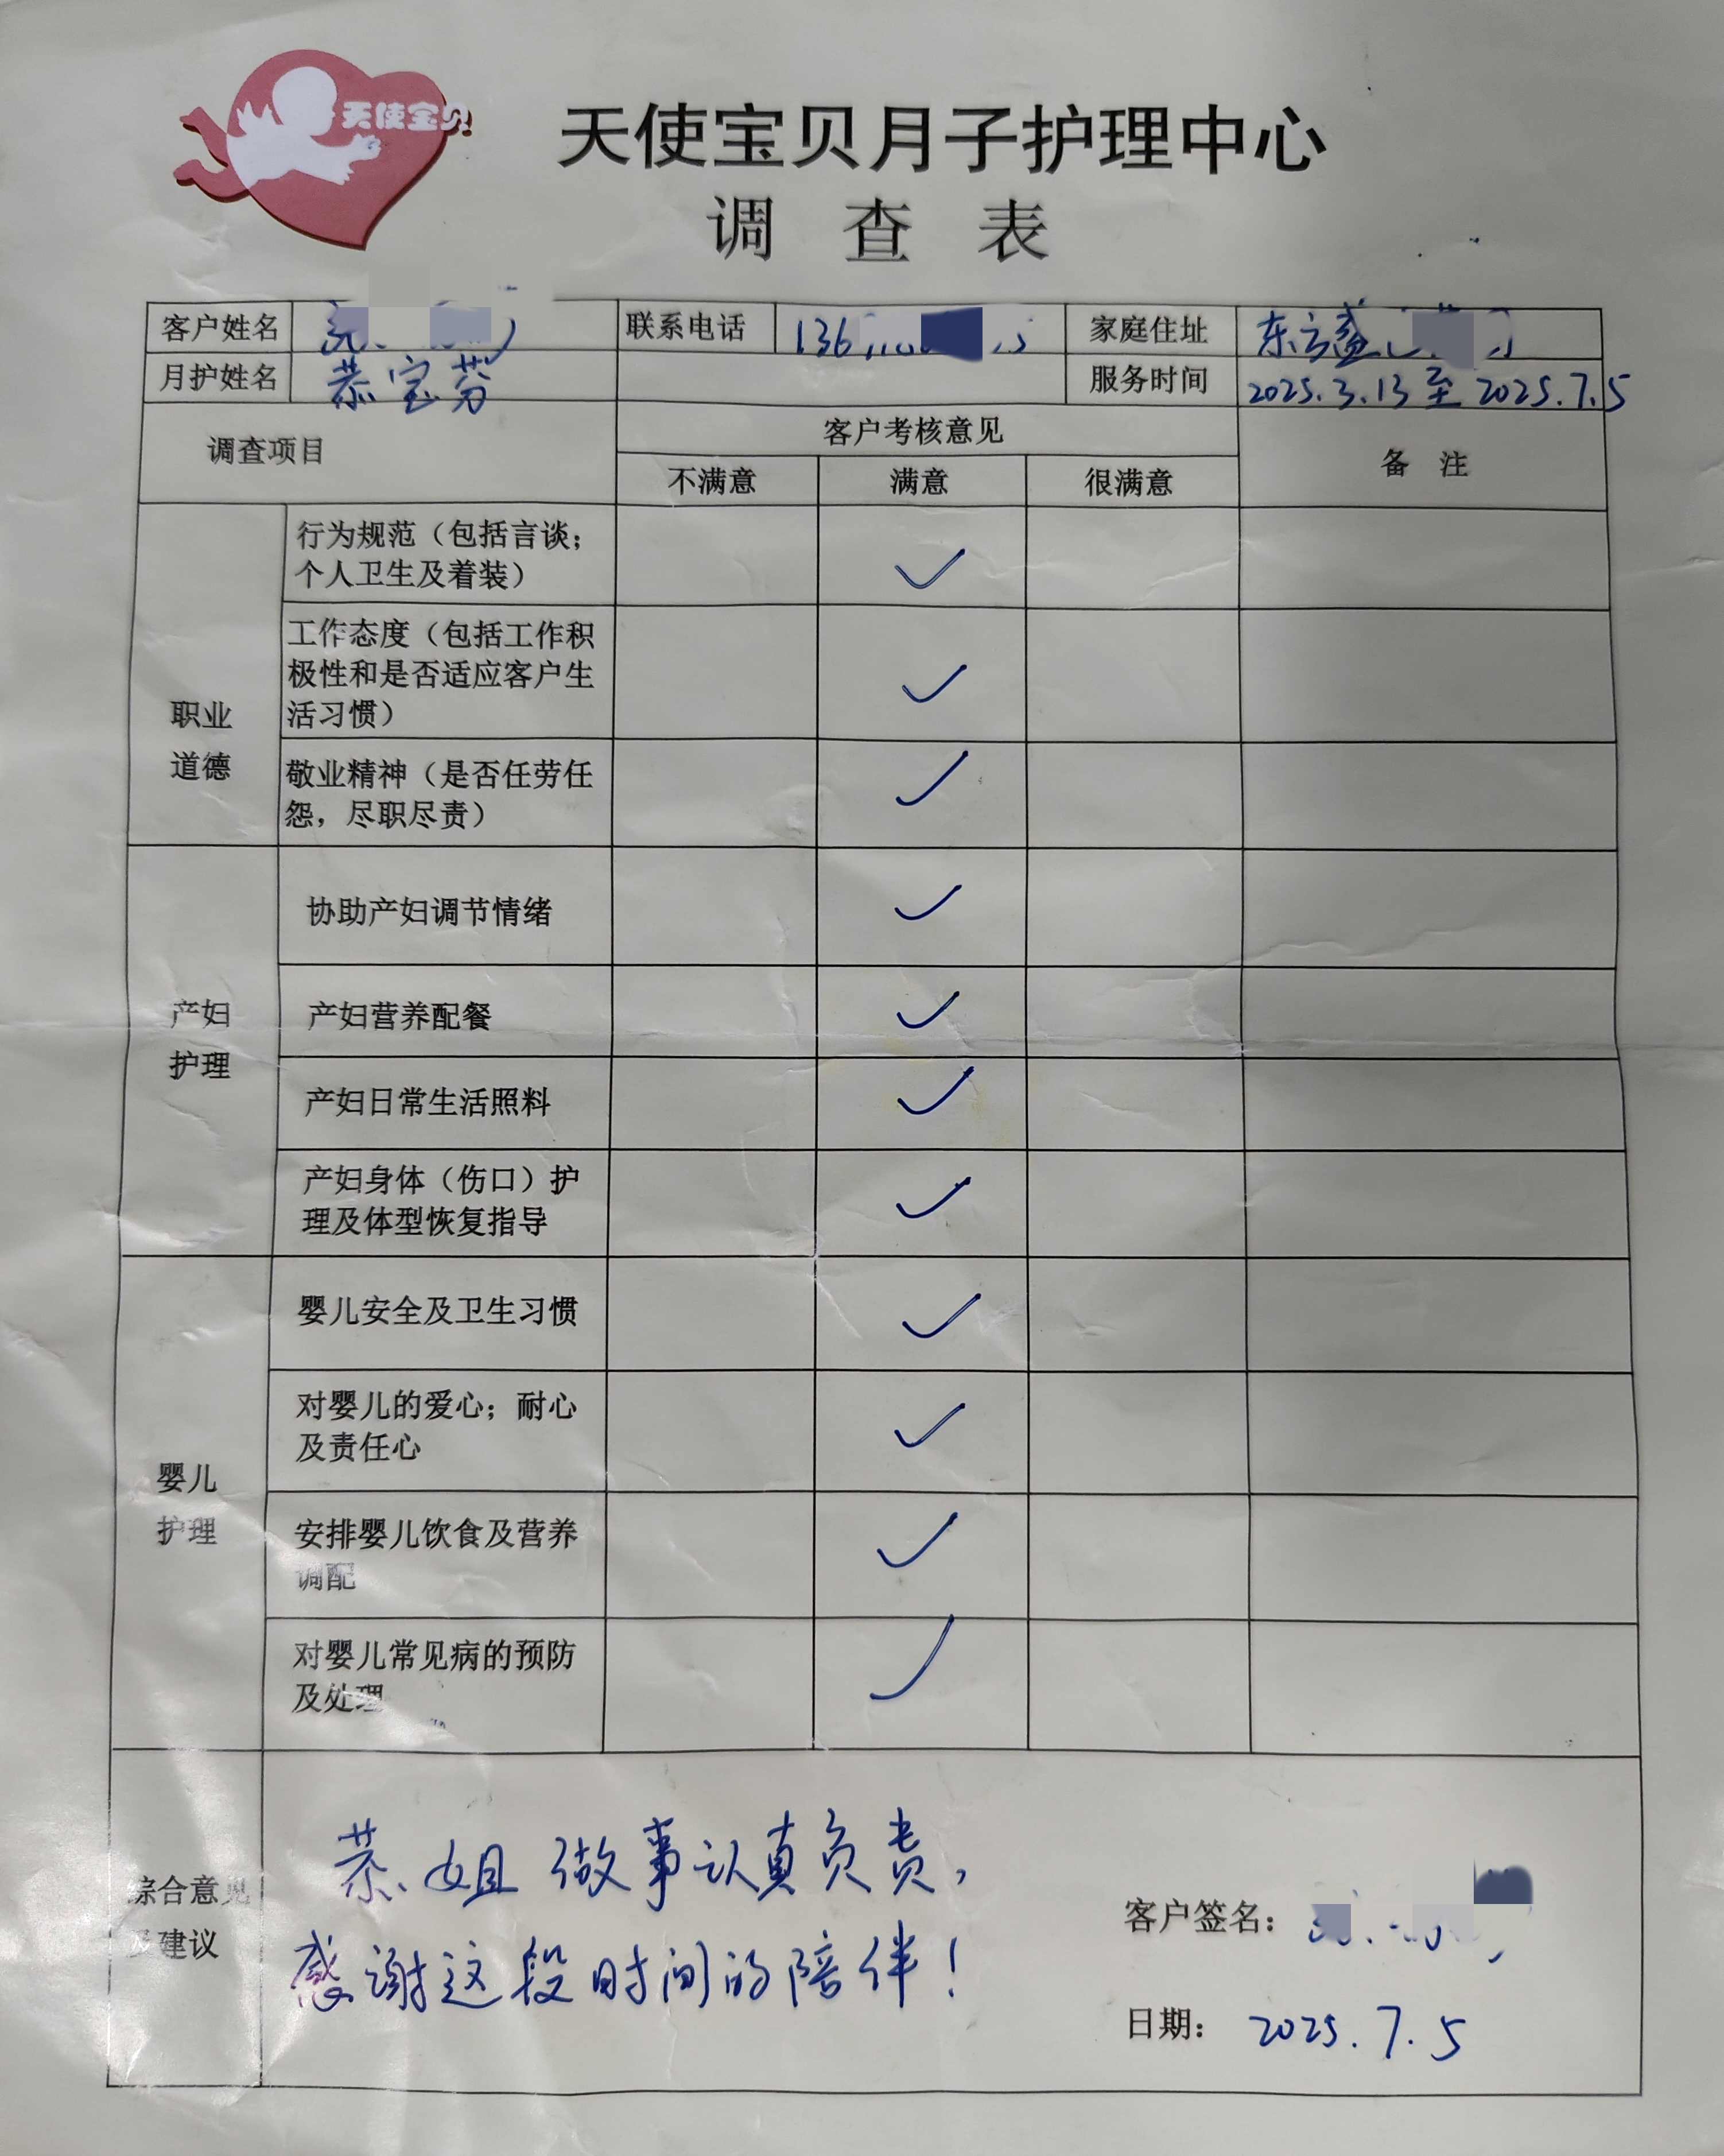 天使宝贝
天使宝贝月子护理中心
调 查 表
客户姓名 联系电话 136 家庭住址 东方盛
月护姓名 恭宝芬 服务时间 2025.3.13 至 2025.7.5
调查项目 客户考核意见 备 注
不满意 满意 很满意
职业
道德
行为规范（包括言谈；
个人卫生及着装） ✓
工作态度（包括工作积
极性和是否适应客户生
活习惯） ✓
敬业精神（是否任劳任
怨，尽职尽责） ✓
产妇
护理
协助产妇调节情绪 ✓
产妇营养配餐 ✓
产妇日常生活照料 ✓
产妇身体（伤口）护
理及体型恢复指导 ✓
婴儿
护理
婴儿安全及卫生习惯 ✓
对婴儿的爱心；耐心
及责任心 ✓
安排婴儿饮食及营养
调配 ✓
对婴儿常见病的预防
及处理 ✓
综合意见
及建议
恭姐做事认真负责，
感谢这段时间的陪伴！
客户签名：
日期： 2025.7.5